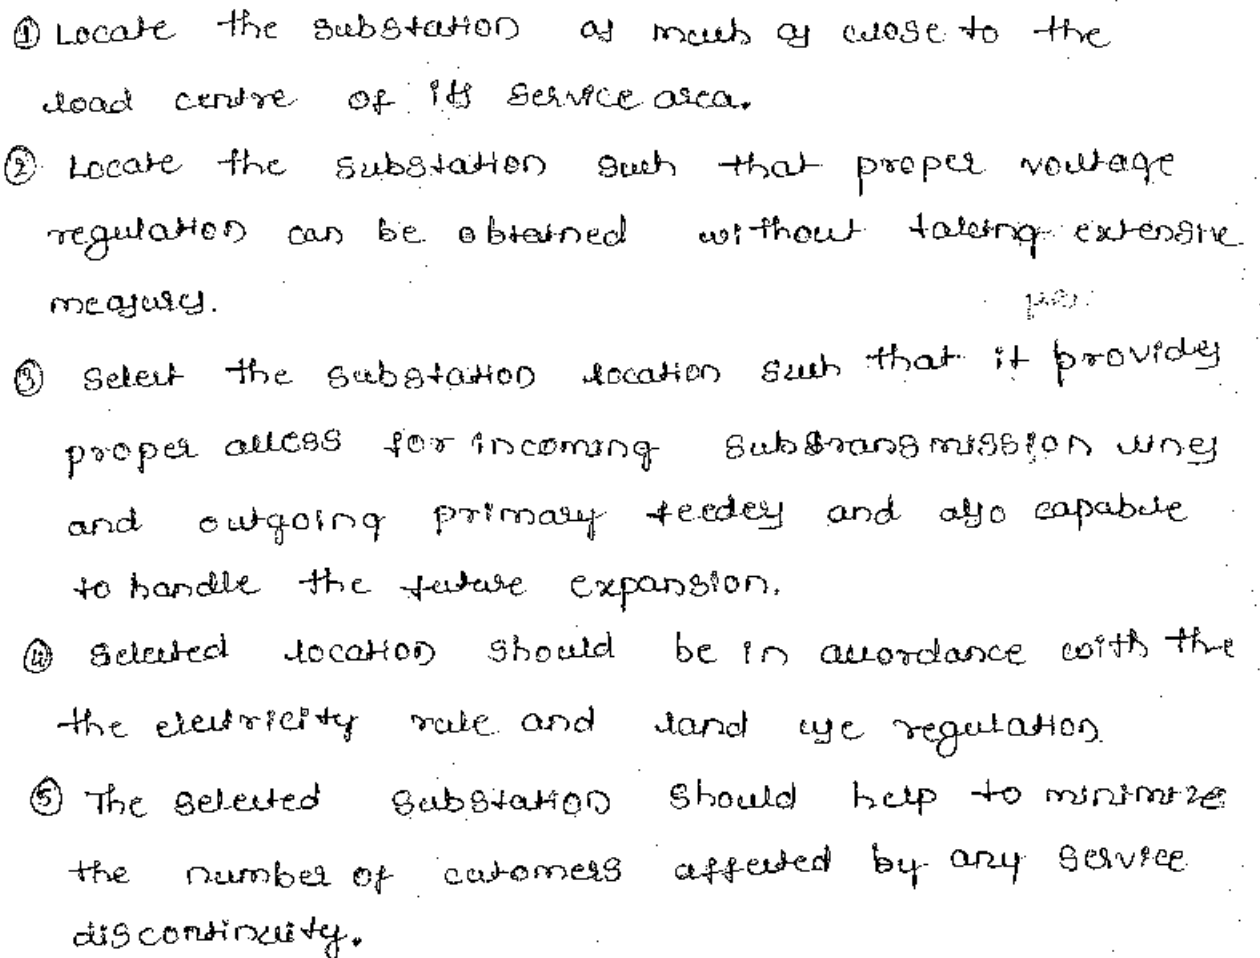 ① Locate the substation as much as close to the
load centre of its service area.
② Locate the substation such that proper voltage
regulation can be obtained without taking extensive
measures.
③ Select the substation location such that it provides
proper access for incoming substransmission lines
and outgoing primary feeders and also capable
to handle the future expansion.
④ Selected location should be in accordance with the
the electricity rule and land use regulation.
⑤ The selected substation should help to minimize
the number of cutomers affected by any service
discontinuity.